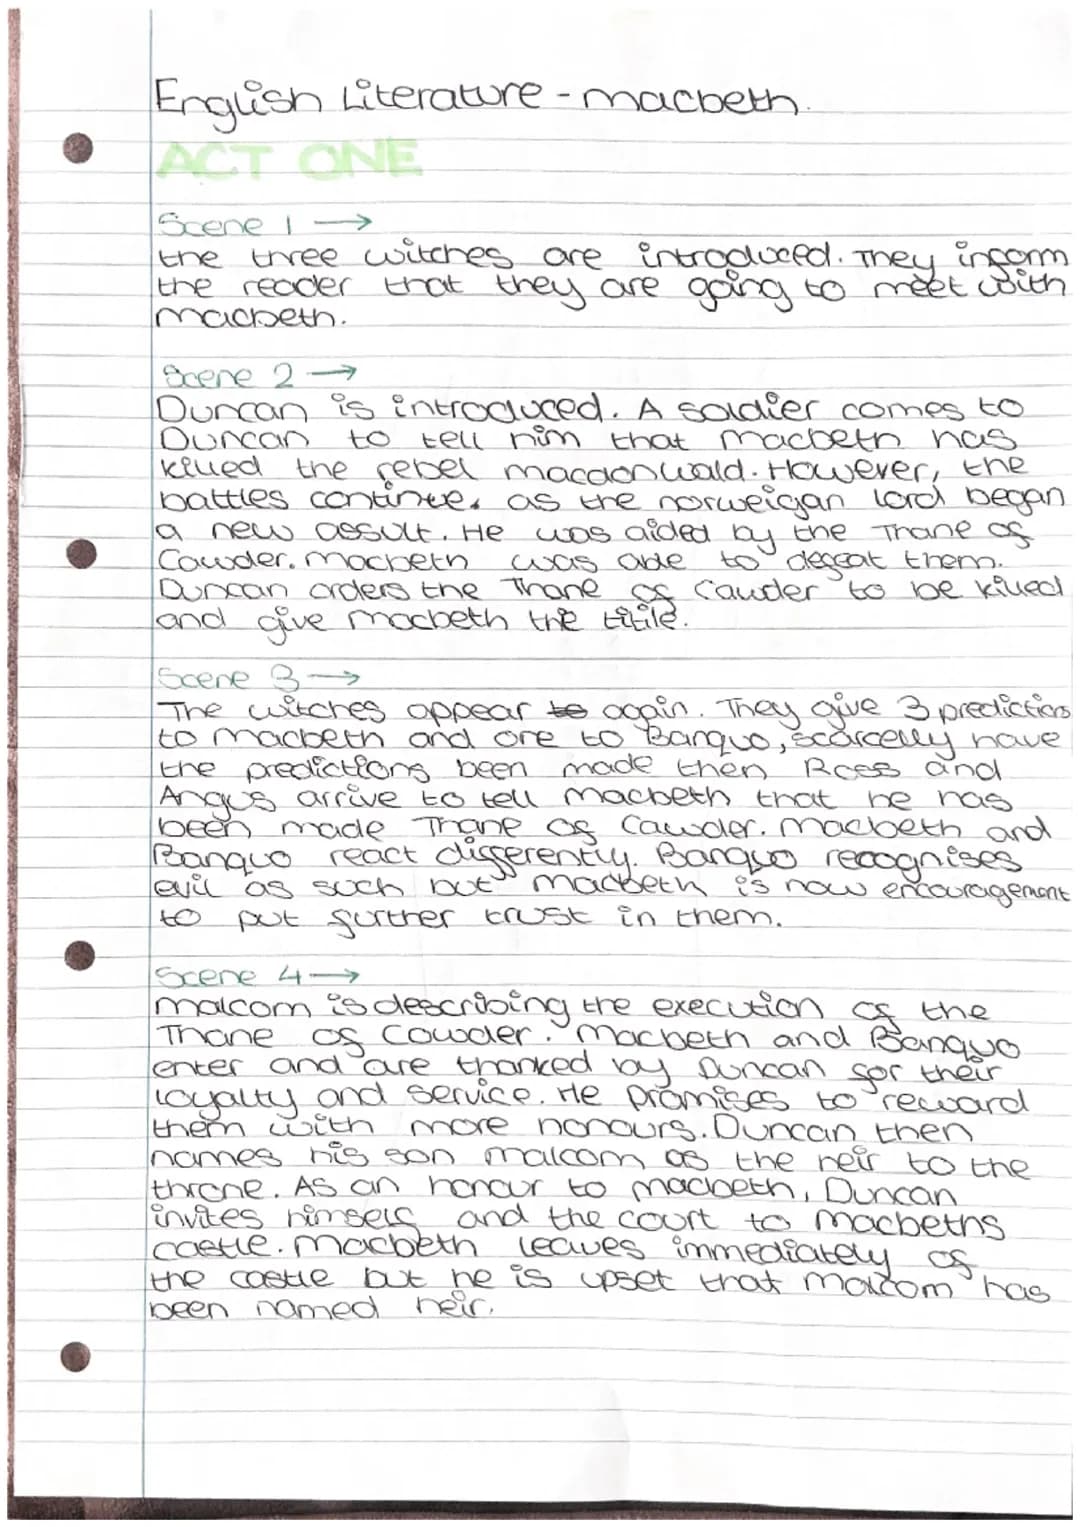 English Literature - macbeth.
ACT ONE
Scene 1 →
the three witches are introduced. They inform
the reader that they are going to meet with
macbeth.
Scene 2 →
Duncan is introduced. A soldier comes to
Duncan to tell him that macbeth has
killed the rebel macdonwald. However, the
battles continue, as the norweigan lord began
a new assult. He was aided by the Thane of
Cawder. macbeth was able to defeat them.
Duncan orders the Thane of Cawder to be killed
and give macbeth the titile.
Scene 3 →
The witches appear to again. They give 3 predictions
to macbeth and one to Banquo, scarcelly have
the predictions been made then Ross and
Angus arrive to tell macbeth that he has
been made Thane of Cawder. macbeth and
Banquo react differently. Banquo recognises
evil as such but macbeth is now encouragement
to put further trust in them.
Scene 4 →
malcom is describing the execution of the
Thane of Cowder. Macbeth and Banquo
enter and are thanked by Duncan for their
loyalty and service. He promises to reward
them with more honours. Duncan then
names his son malcom as the heir to the
throne. As an honour to macbeth, Duncan
invites himself and the court to macbeths
castle. Macbeth leaves immediately of
the castle but he is upset that malcom has
been named heir.